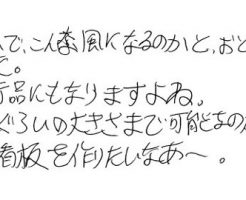 で、こんな風になるのかと、おど
て。
品にもなりますよね。
ぐらいの大きさまで可能なのか
看板を作りたいなあ〜。